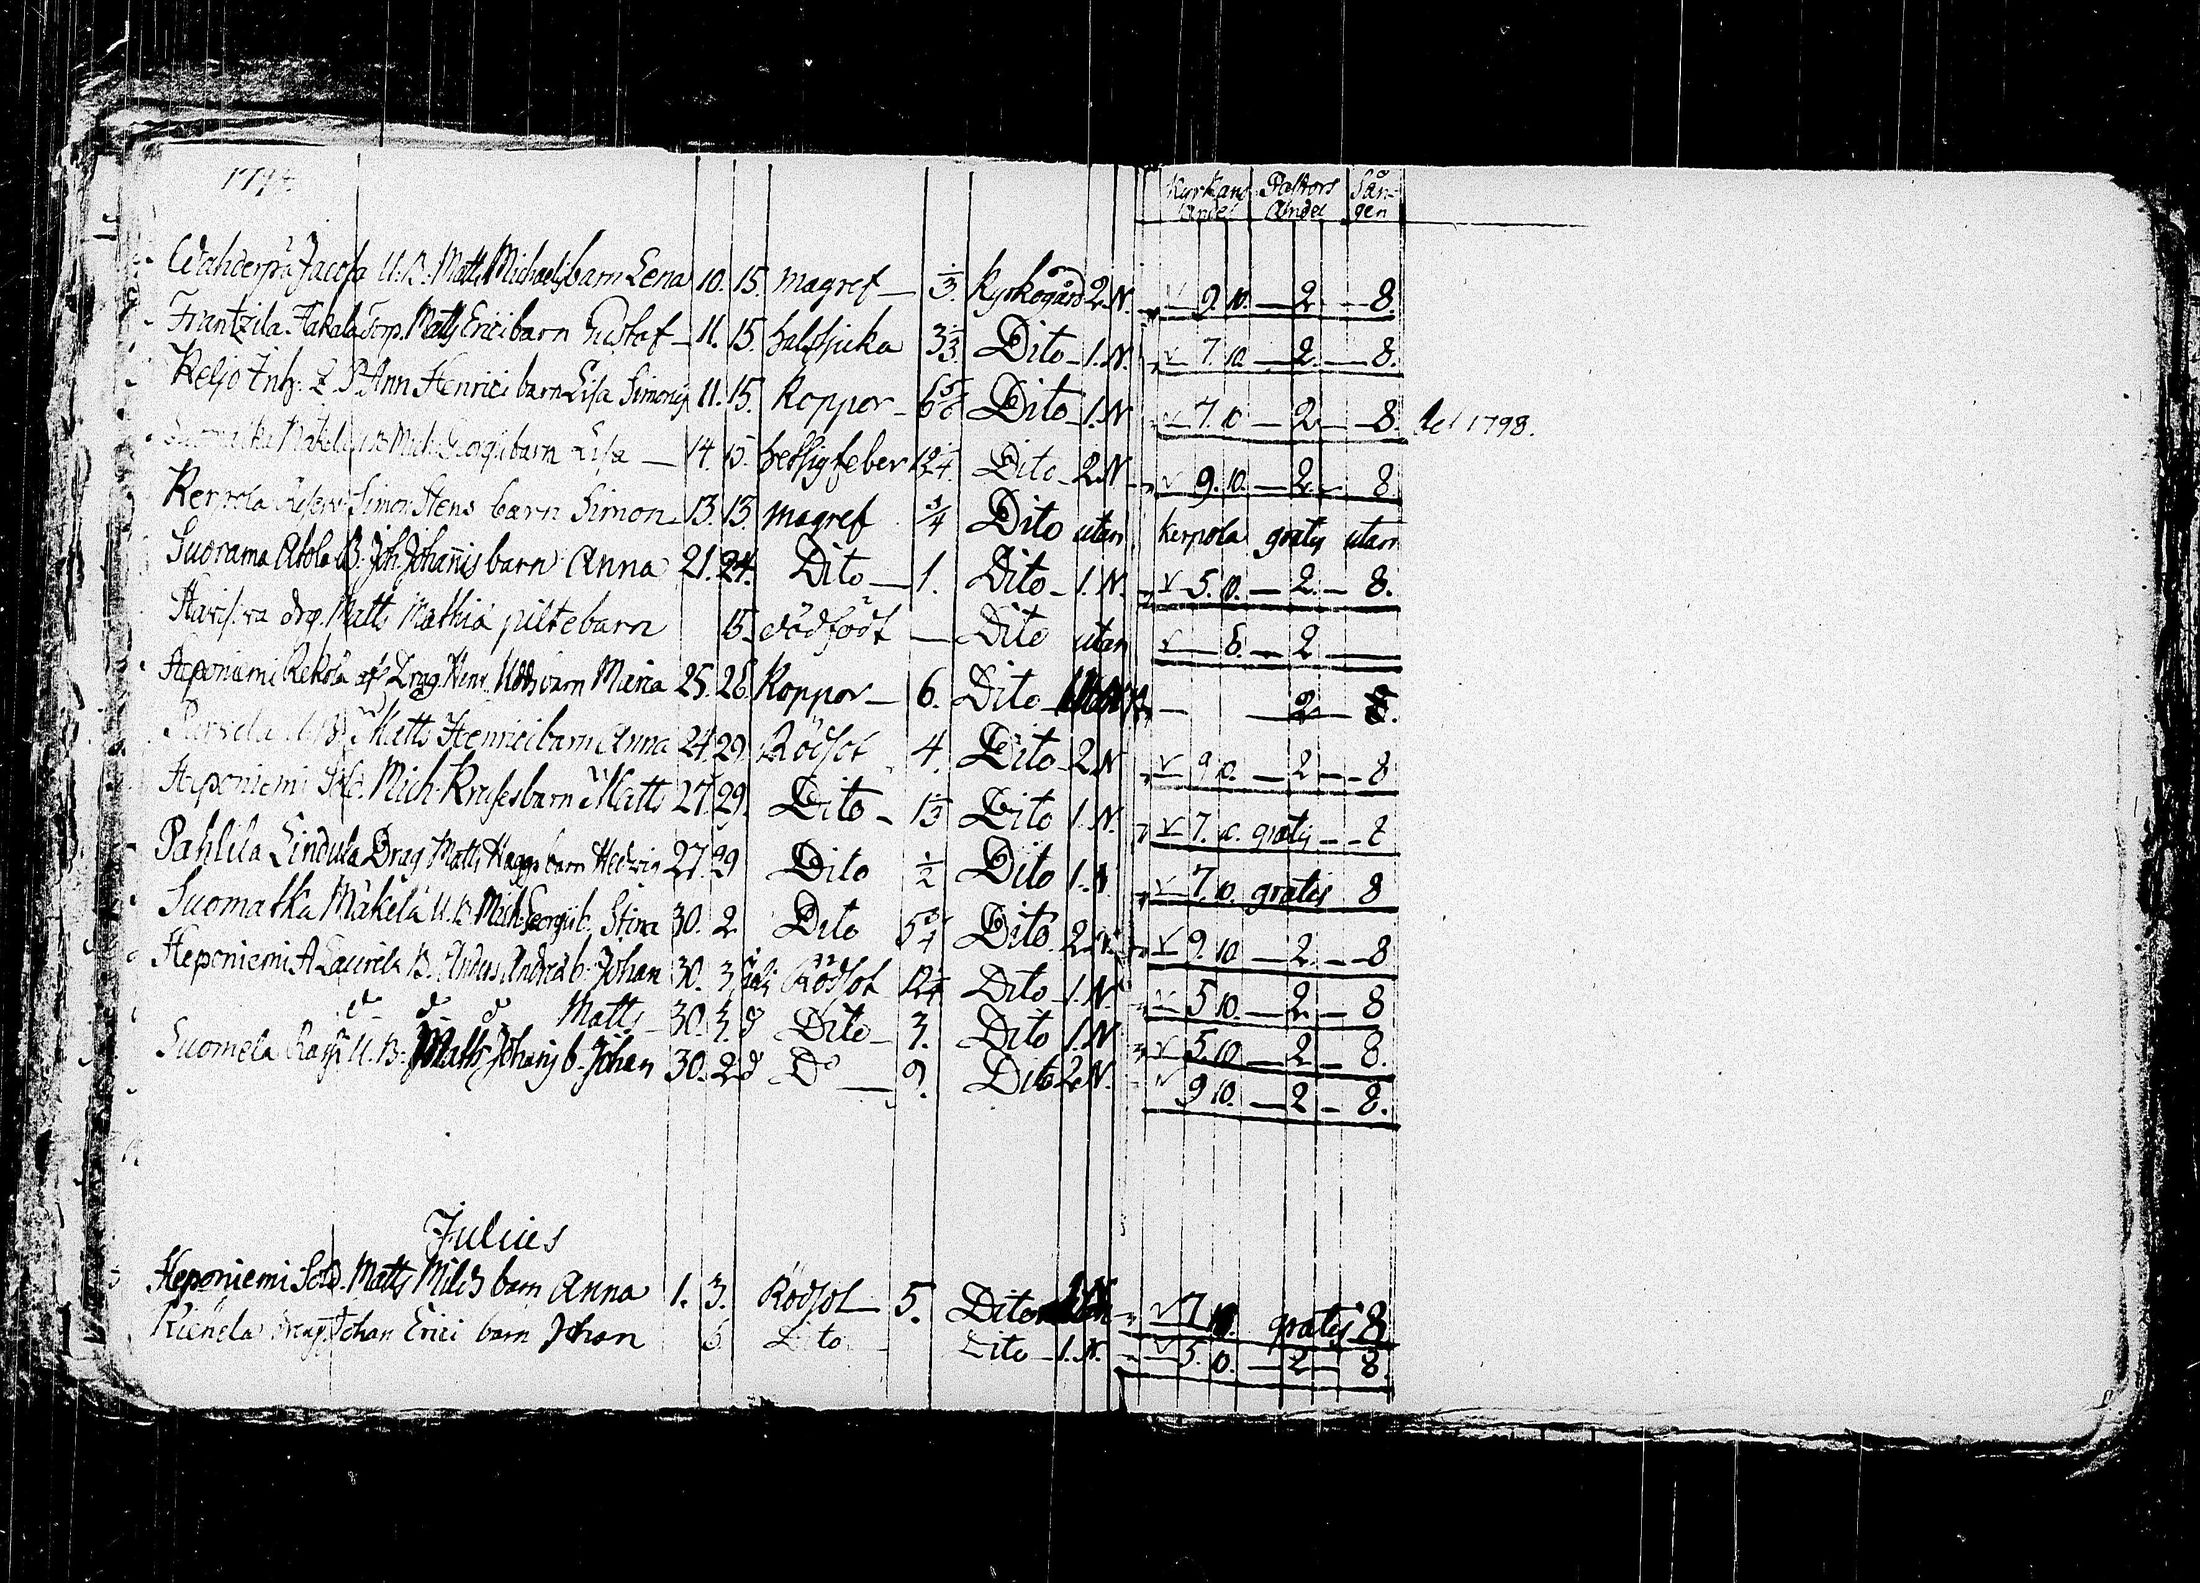 Kyrkans Andel Pastors Andel Sången
Jacofa U.B. Matts Michaelis barn Lena 10. 15. magref — 1/3. Kyrkogård 2. N. 9. 10. — 2 — 8.
Frantzila Hakala Torp. Matts Erici barn Gustaf — 11. 15. halssjuka 3 1/3 Dito — 1. N. 7. 10. — 2. — 8.
Keljo Inh. Ann Henrici barn Lisa Simonis 11. 15. Koppor — 6 5/6 Dito — 1. N. 7. 10 — 2 — 8. 1798.
Suomatka Mäkelä U.B. Mich. Georgii barn Lisa — 14. 15. hetsig feber 12 1/4 Dito — 2. N. 9. 10. — 2. — 8
Kerpola Simon Stens barn Simon — 13. 13. magref 3/4 Dito utan Kerpola gratis utan
Suorama Atola B. Joh. Johannis barn Anna 21. 24. Dito — 1. Dito — 1. N. 5. 10. — 2. — 8.
drg. Matts Mathiæ piltebarn 15. dödfödt — Dito utan 6. — 2 —
Heponiemi Rekola Drag. Henr. barn Maria 25. 26. Koppor — 6. Dito — 2 — 8.
U.B. Matts Henrici barn Anna 24. 29. Rödsot 4. Dito — 2. N 9 10. — 2 — 8
Heponiemi Sold. Mich. Kruses barn Matts 27. 29. Dito — 1/3 Dito 1. N. 7. 10. gratis — 8
Pahlila Lindula Drag. Matts Haggs barn Hedvig 27. 29 Dito 1/2 Dito 1. N 7. 10. gratis 8
Suomatka Mäkelä U.B. Mich. Georgii b. Stina 30. 2. Dito 5 3/4 Dito 2. N. 9. 10 — 2. — 8
Heponiemi A Laurila B. Anders Andreæ b. Johan 30. 3. Juli Rödsot 12 1/4 Dito — 1. N 5 10. — 2 — 8
d d d Matts — 30. 3. d Dito — 3. Dito 1. N 5. 10. — 2 — 8.
Suomela U.B. Matts Johanis b. Johan 30. 2. d Do — 9. Dito 2. N. 9 10. — 2 — 8.
Julius
Heponiemi Sold. Matts Milds barn Anna 1. 3. Rödsot — 5. Dito 7 10. gratis 8
Drag. Johan Erici barn Johan 5. Dito Dito — 1. N. 5. 10. — 2 — 8.